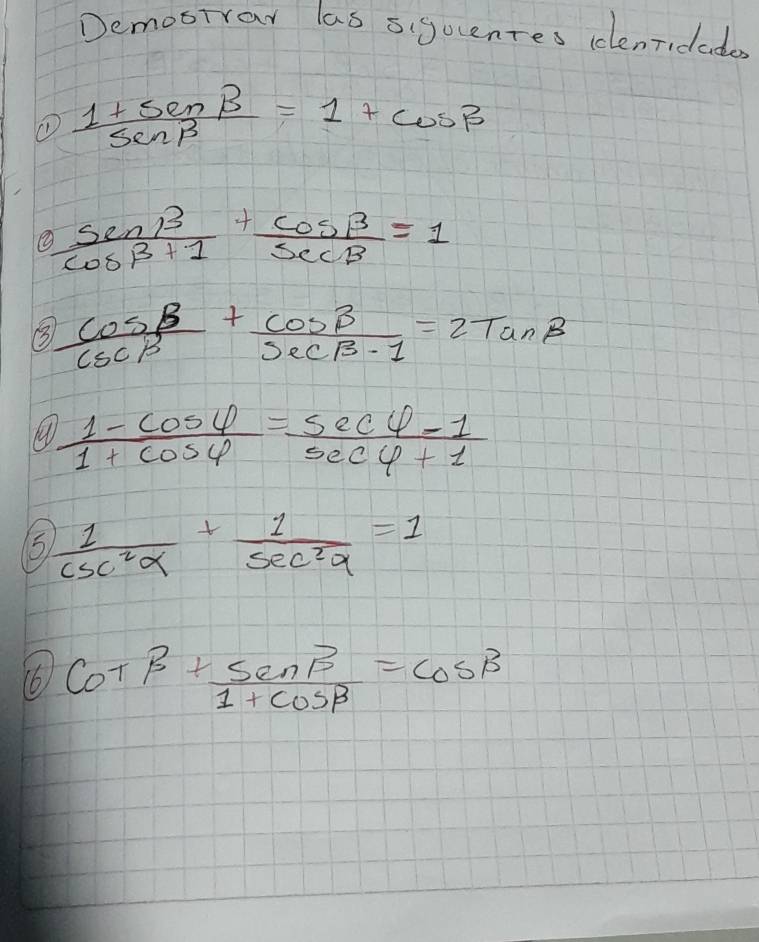 Demostrar las siguientes identidades
① 1 + sen β / sen β = 1 + cos β
② sen β / cos β + 1 + cos β / sec β = 1
③ cos β / csc β + cos β / sec β - 1 = 2 Tan β
④ 1 - cos φ / 1 + cos φ = sec φ - 1 / sec φ + 1
⑤ 1 / csc² α + 1 / sec² α = 1
⑥ Cot β + sen β / 1 + cos β = cos β